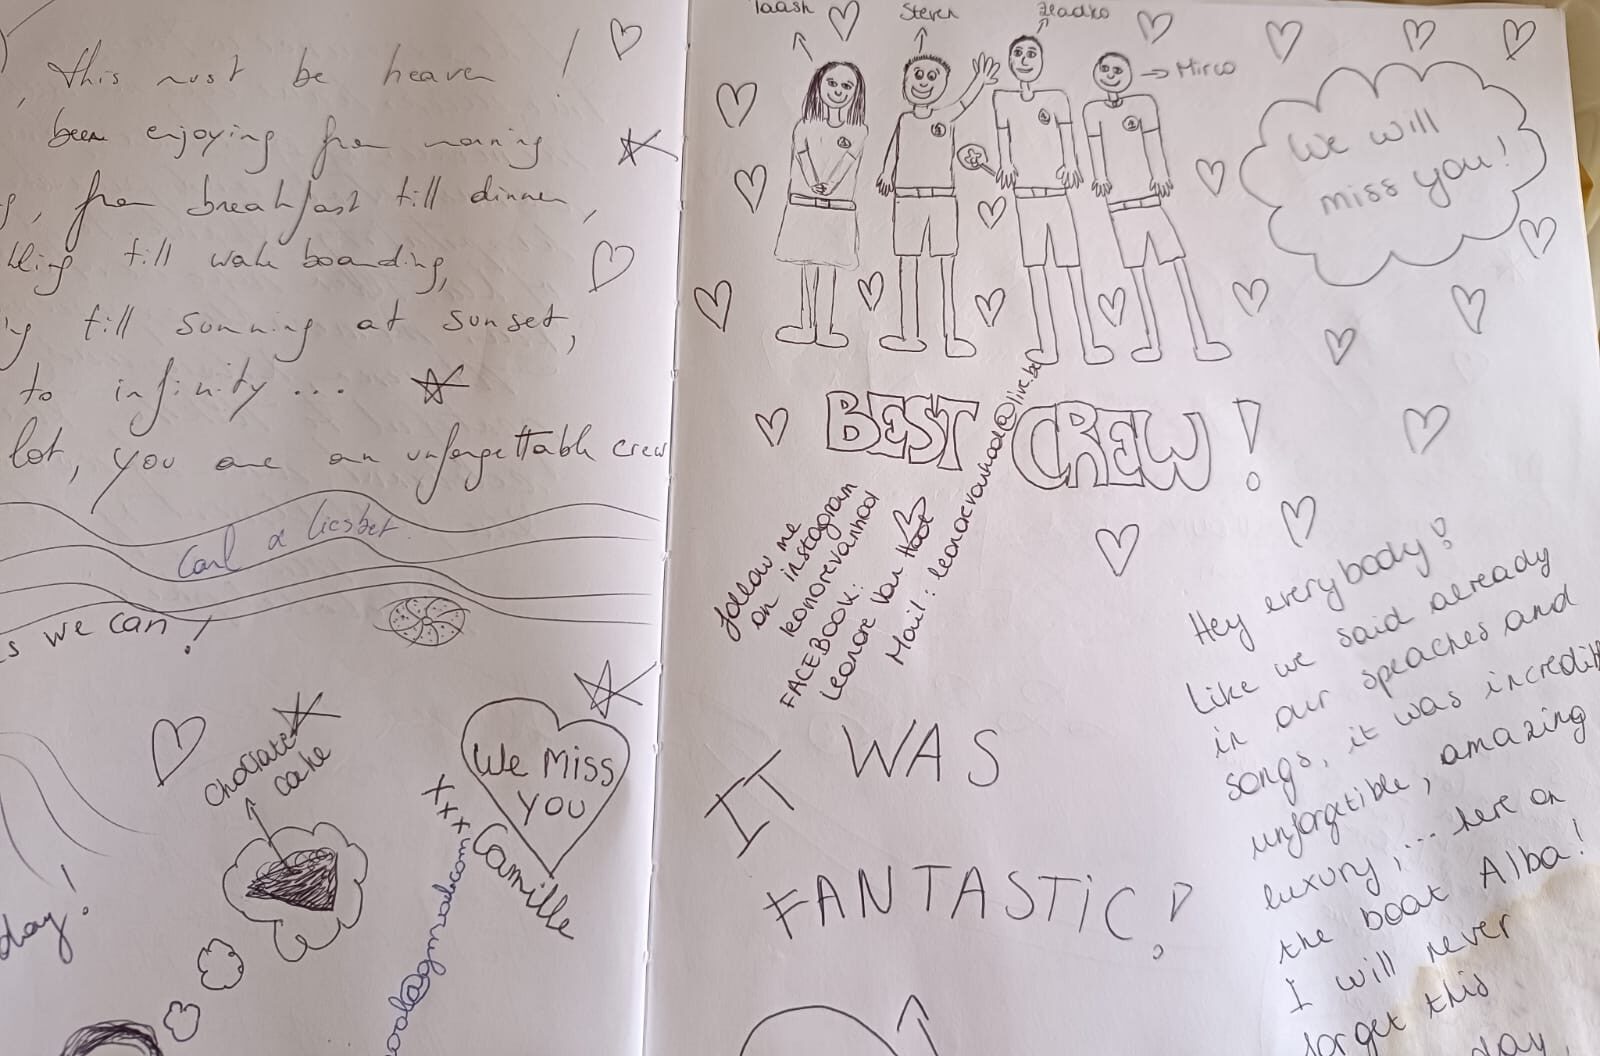 , this must be heaven !
been enjoying from morning
, from breakfast till dinner,
till wake boarding,
till sunning at sunset,
to infinity...
lot, you are an unforgettable crew
Carl & Liesbet
s we can!
chocolate
cake
We Miss
YOU
xxx
Camille
day!
Steven
Mirco
We will
miss you!
BEST CREW!
follow me
on instagram
leonorevanhool
FACEBOOK:
Leonore Van Hool
Mail: leonorevanhool@live.be
IT WAS
FANTASTIC!
Hey everybody!
Like we said already
in our speaches and
songs, it was incredib
unforgetible, amazing
luxury,... here on
the boat Alba!
I will never
forget this
day,